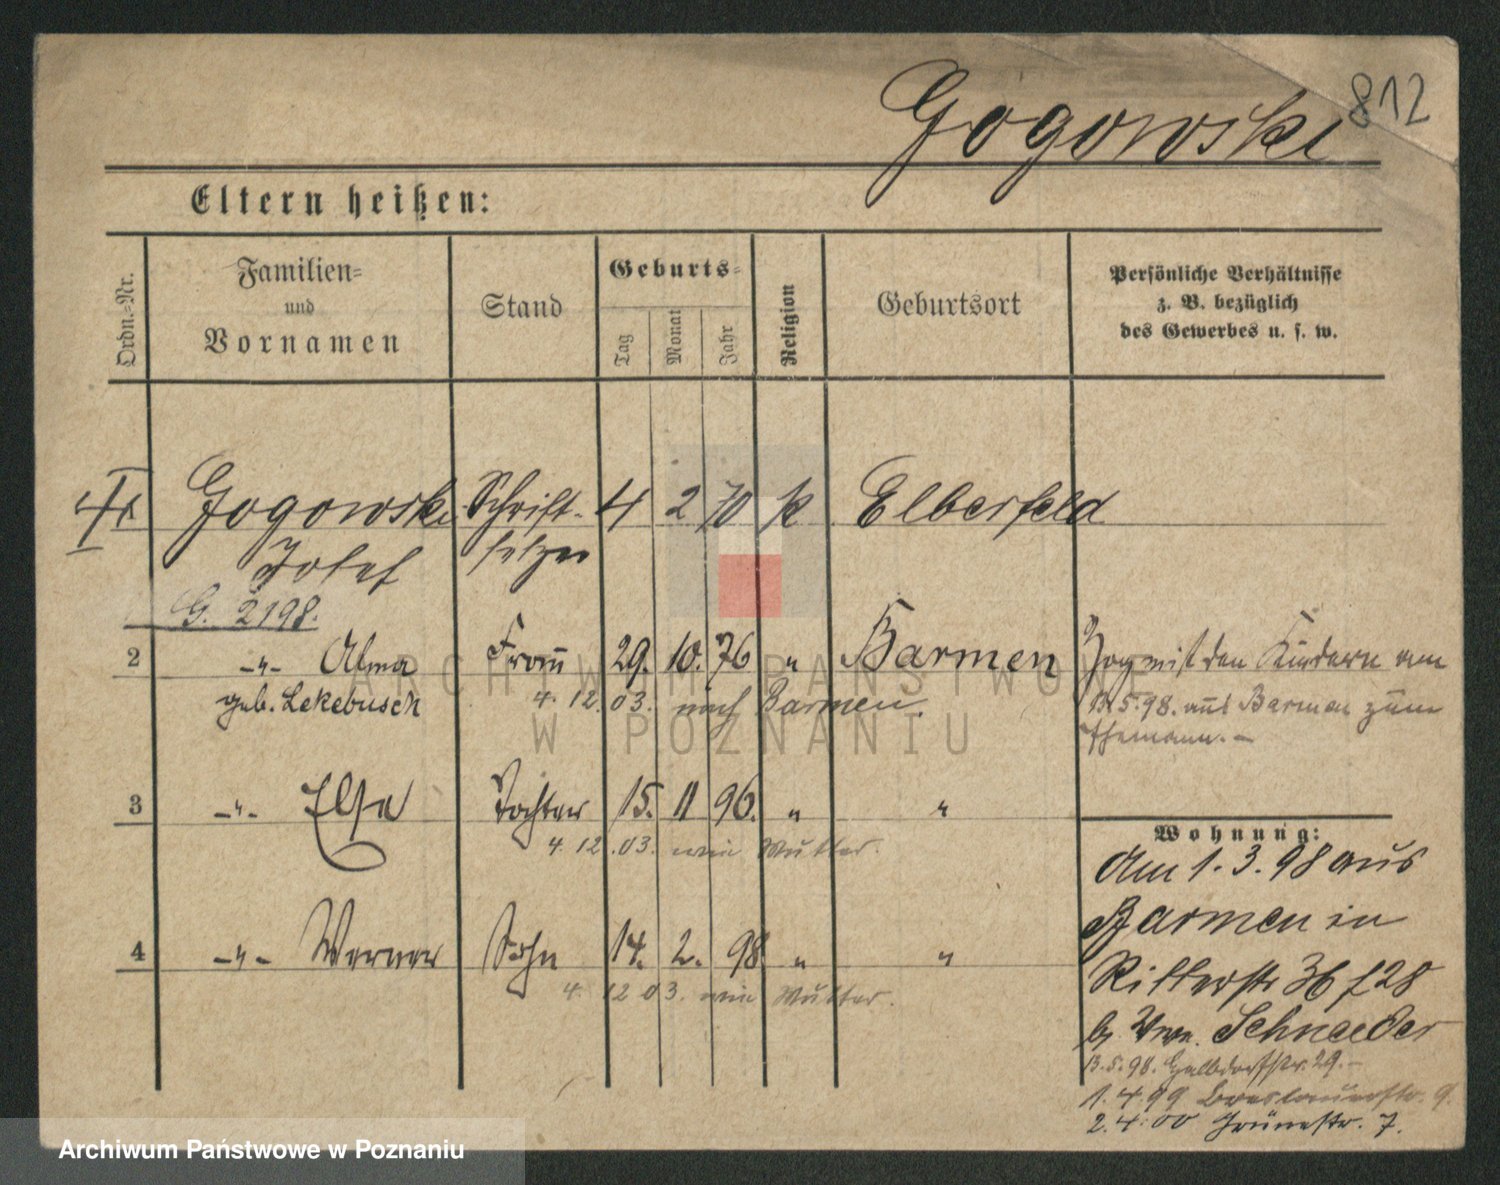 812
Gogowski
Eltern heißen:
Ordn.-Nr.
Familien-
und
Vornamen
Stand
Geburts-
Tag
Monat
Jahr
Religion
Geburtsort
Persönliche Verhältnisse
z. B. bezüglich
des Gewerbes u. s. w.
Gogowski Schrift- 4 2 70 k Elberfeld
Josef setzer
G. 2198.
2 -"- Alma Frau 29. 10. 76 " Barmen Zog mit den Kindern am
geb. Lekebusch 4. 12. 03. nach Barmen. 13.5.98. aus Barmen zum
Ehemann. -
3 -"- Elsa Tochter 15. 11 96. " "
4. 12. 03. wie Mutter.
4 -"- Werner Sohn 14. 2. 98 " "
4. 12 03. wie Mutter.
Wohnung:
Am 1. 3. 98 aus
Barmen in
Ritterstr 36
b. Wwe. Schneider
13.5.98. Halbdorfstr. 29. -
1. 4. 99 Breslauerstr. 9.
2. 4. 00 Grünestr. 7.
ARCHIWUM PAŃSTWOWE
W POZNANIU
Archiwum Państwowe w Poznaniu